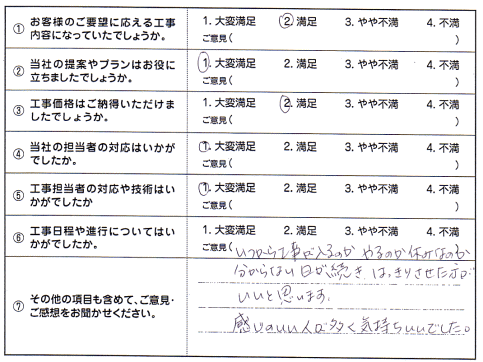 ① お客様のご要望に応える工事 1. 大変満足 2. 満足 3. やや不満 4. 不満
内容になっていたでしょうか。 ご意見( )
② 当社の提案やプランはお役に 1. 大変満足 2. 満足 3. やや不満 4. 不満
立ちましたでしょうか。 ご意見( )
③ 工事価格はご納得いただけま 1. 大変満足 2. 満足 3. やや不満 4. 不満
したでしょうか。 ご意見( )
④ 当社の担当者の対応はいかが 1. 大変満足 2. 満足 3. やや不満 4. 不満
でしたか。 ご意見( )
⑤ 工事担当者の対応や技術はい 1. 大変満足 2. 満足 3. やや不満 4. 不満
かがでしたか ご意見( )
⑥ 工事日程や進行についてはい 1. 大変満足 2. 満足 3. やや不満 4. 不満
かがでしたか。 ご意見( いつから工事が入るのか やるのか休みなのか
分からない日が続き はっきりさせた方が
⑦ その他の項目も含めて、ご意見・ いいと思います。
ご感想をお聞かせください。
感じのいい人が多く気持ちいいでした。